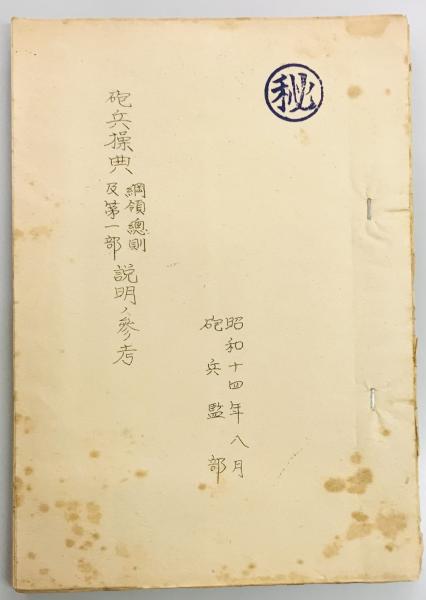 秘
昭和十四年八月
砲兵監部
砲兵操典
綱領總則
及第一部
説明ノ參考